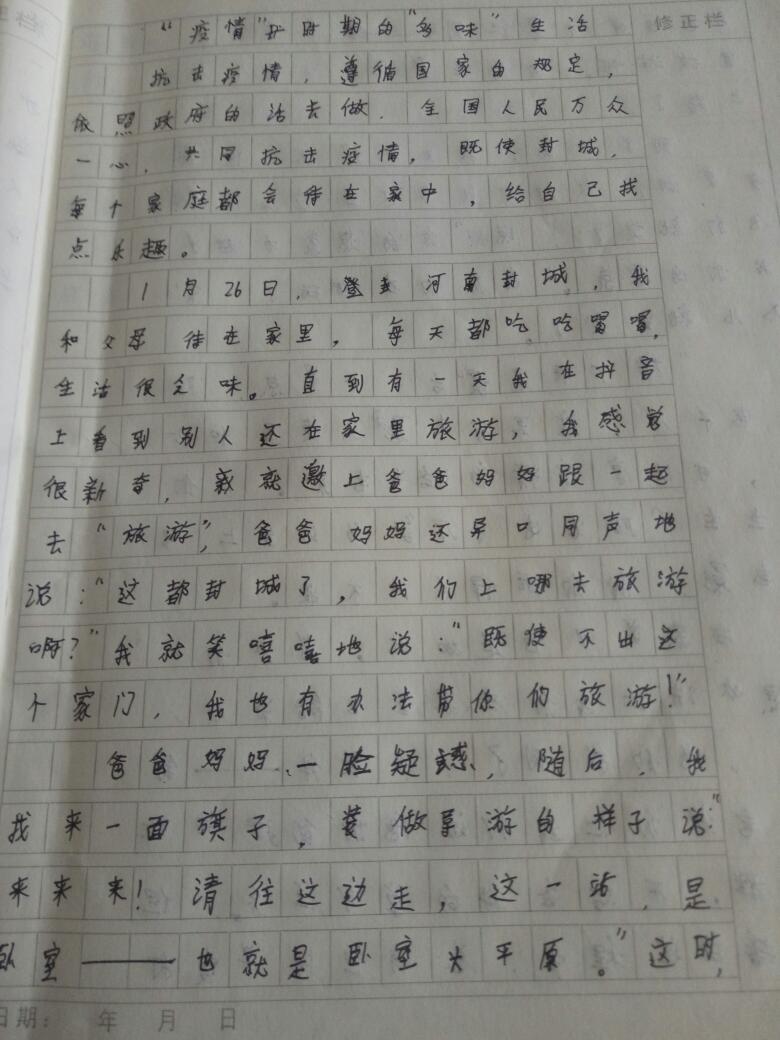 修正栏
“疫情”时期的“多味”生活
抗击疫情，遵循国家的规定，
依照政府的话去做．全国人民万众
一心，共同抗击疫情，既使封城，
每个家庭都会待在家中，给自己找
点乐趣。
1月26日，整封河南封城，我
和父母待在家里，每天都吃吃冒冒，
生活很乏味。直到有一天我在抖音
上看到别人还在家里旅游，我感觉
很新奇，我就邀上爸爸妈妈跟一起
去“旅游”，爸爸妈妈还异口同声地
说：“这都封城了，我们上哪去旅游
啊？”我就笑嘻嘻地说：“既使不出这
个家门，我也有办法带你们旅游！”
爸爸妈妈、一脸疑惑，随后，我
找来一面旗子，装做导游的样子说：“
来来来！请往这边走，这一站，是
卧室——也就是卧室大平原。”这时，
日期： 年 月 日